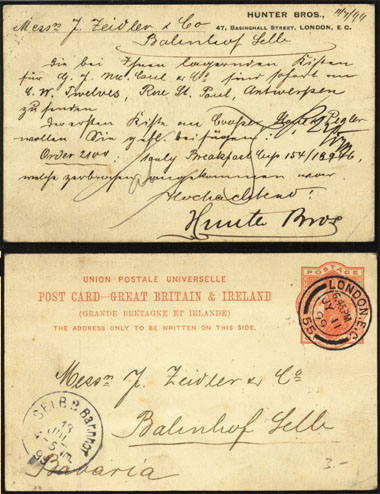 HUNTER BROS.,
47, BASINGHALL STREET, LONDON, E.C.
11/7/99
Messrs J. Zeidler & Co
Bahnhof Selb
Die bei Ihnen lagernden Kisten
für G. J. Mc. Caul & Co sind sofort an
C. W. Twelves, Rose St. Paul, Antwerpen
zu senden
Der ersten Kiste an Cooper
wollen Sie gefl. beifügen:
Order 2100 : 1 only Breakfast Cup 154/
welche zerbrochen angekommen war
Hochachtend:
Hunter Bros
UNION POSTALE UNIVERSELLE
POST CARD—GREAT BRITAIN & IRELAND
(GRANDE BRETAGNE ET IRLANDE)
THE ADDRESS ONLY TO BE WRITTEN ON THIS SIDE.
POSTAGE
LONDON.E.C.
6.45PM
JY 11
99
55
Messrs J. Zeidler & Co
Bahnhof Selb
Bavaria
SELB.Bahnhof
13
JUL
99
3.-